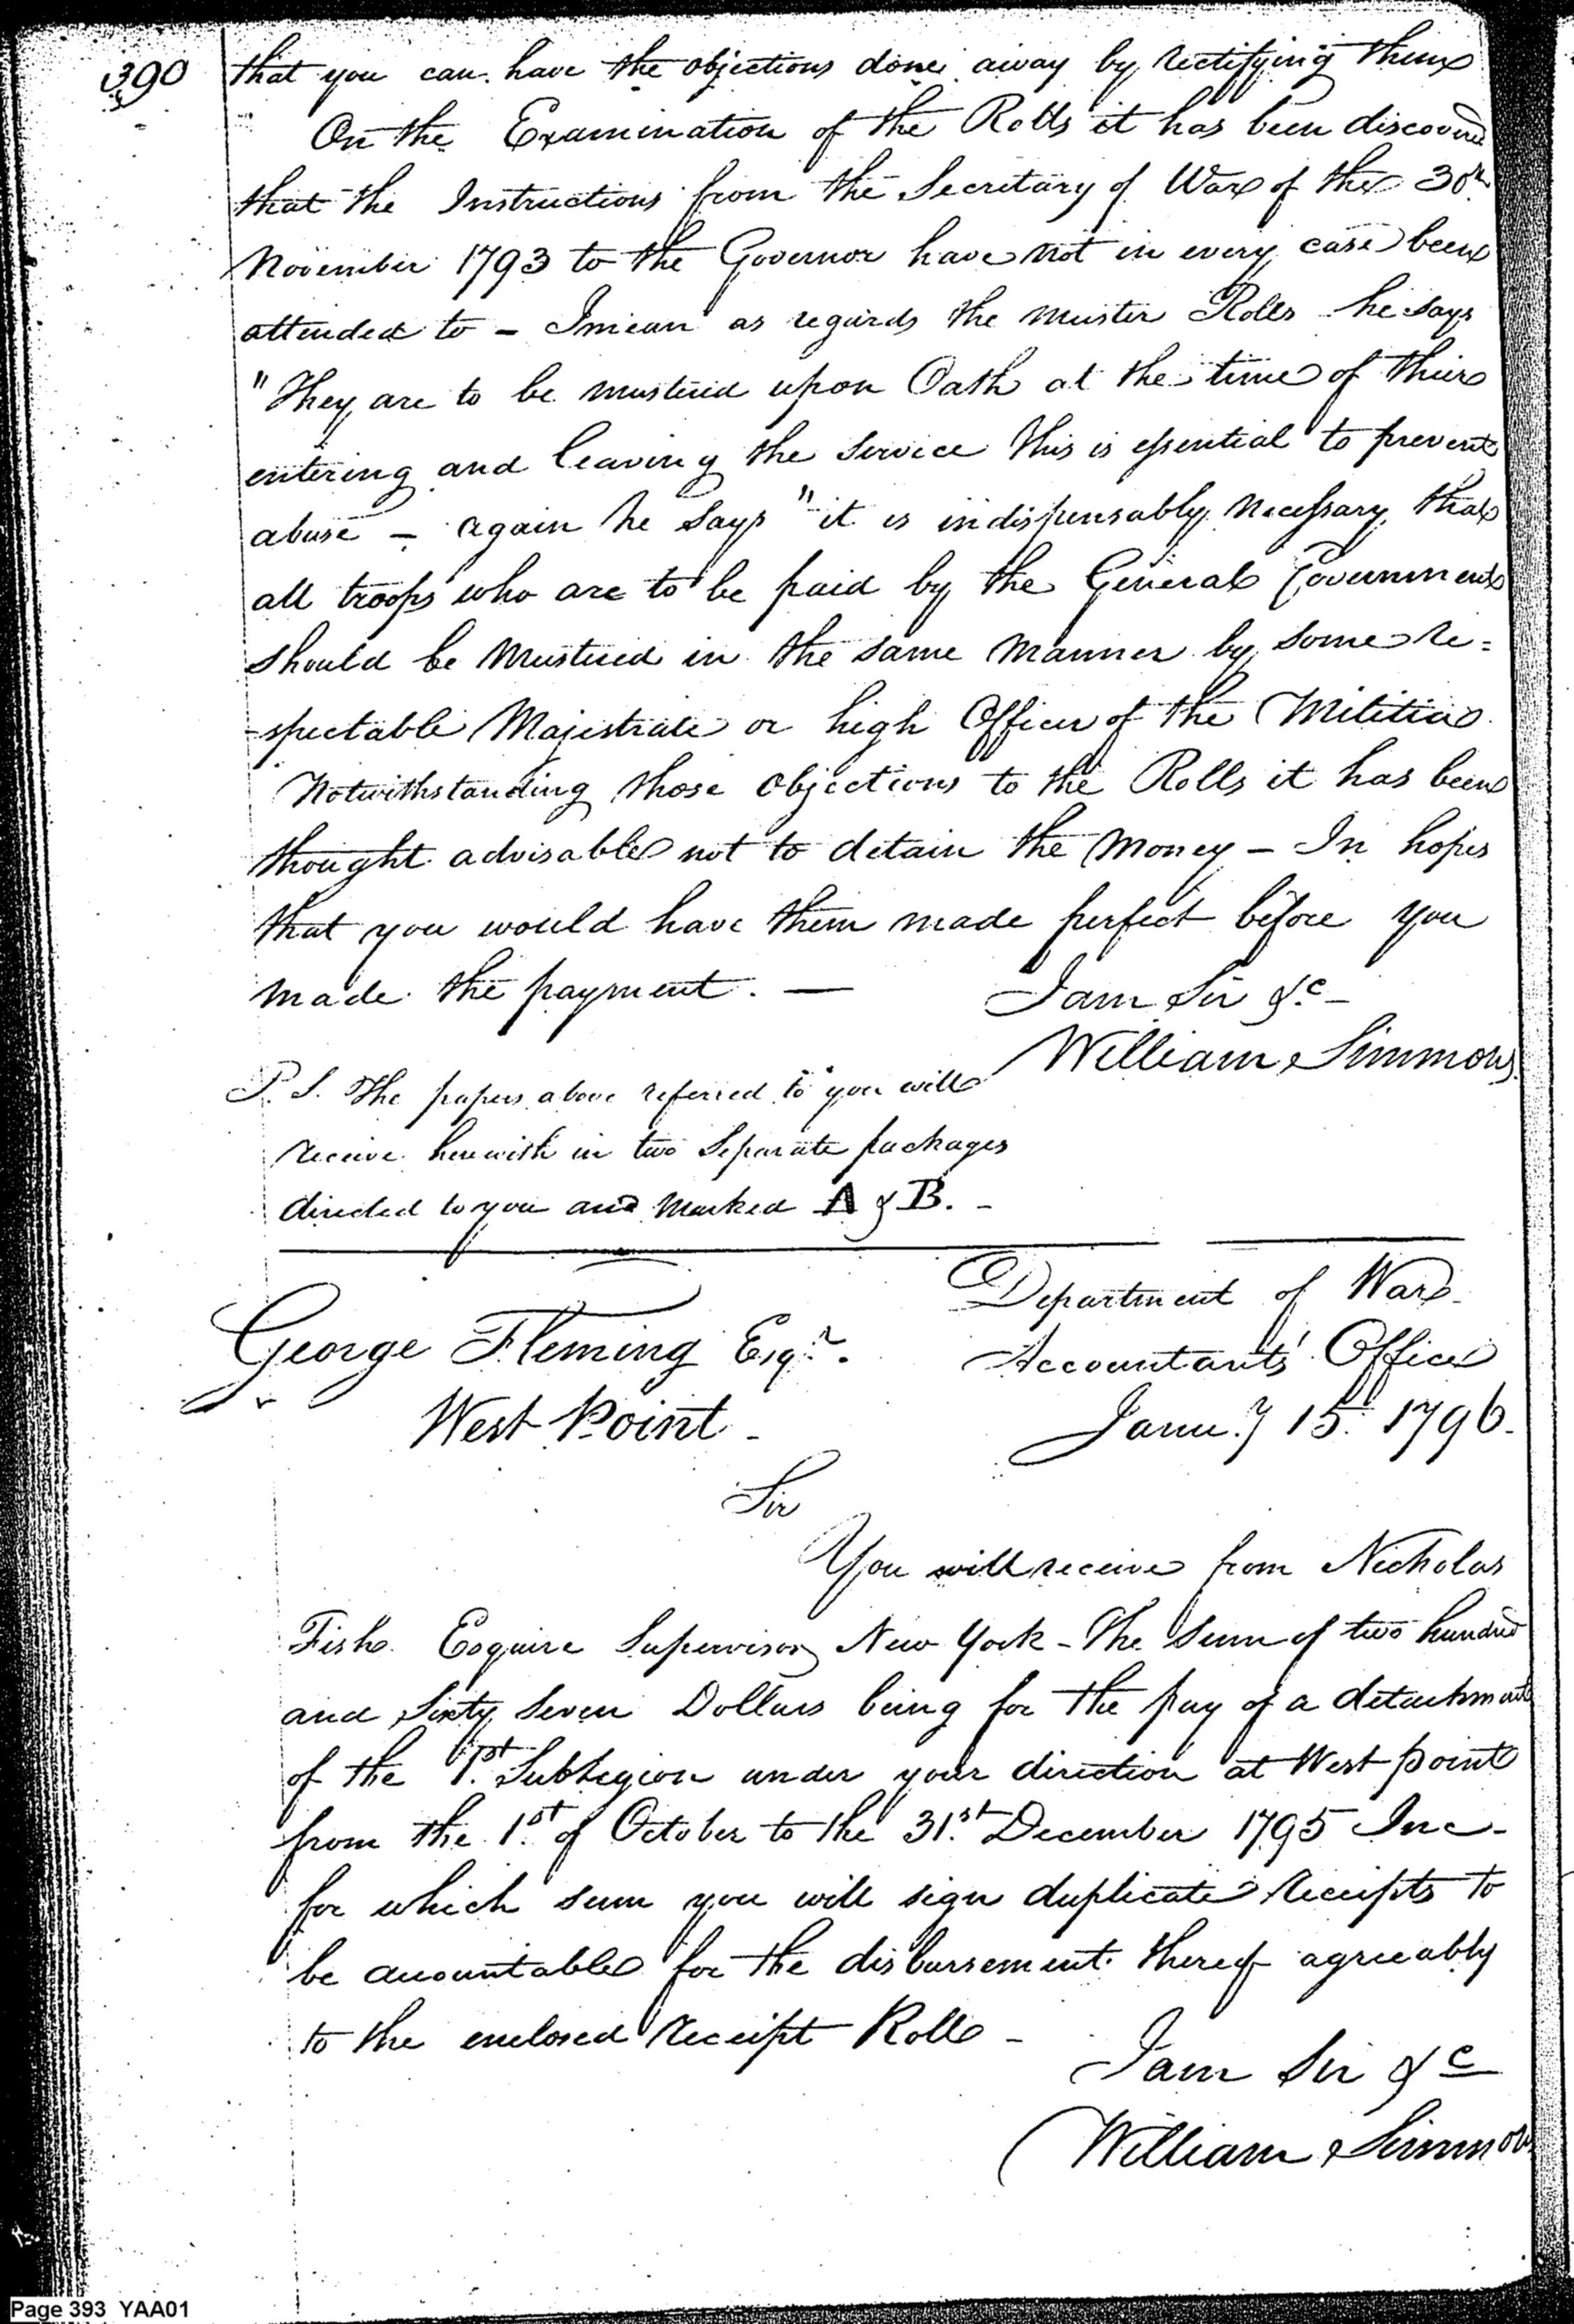 390
that you can have the objections done away by rectifying them
On the Examination of the Rolls it has been discovered
that the Instructions from the Secretary of War of the 30th
November 1793 to the Governor have not in every case been
attended to - I mean as regards the muster Rolls he says
"They are to be mustered upon Oath at the time of their
entering and leaving the service this is essential to prevent
abuse - again he says "it is indispensably necessary that
all troops who are to be paid by the General Government
should be Mustered in the same manner by some re=
-spectable Majestrate or high Officer of the Militia
Notwithstanding those objections to the Rolls it has been
thought advisable not to detain the Money - In hopes
that you would have them made perfect before you
made the payment. —
I am Sir &c -
William Simmons
P. S. The papers above referred to you will
receive herewith in two Separate packages
directed to you and Marked A & B. -
Department of War
George Fleming Esqr.
Accountants' Office
West Point -
Janu.y 15. 1796.
Sir
You will receive from Nicholas
Fish Esquire Supervisor New York - The Sum of two hundred
and Sixty Seven Dollars being for the pay of a detachment
of the 1st Sublegion under your direction at West point
from the 1st of October to the 31st December 1795 Inc-
for which sum you will sign duplicate Receipts to
be accountable for the disbursement thereof agreeably
to the enclosed Receipt Roll -
I am Sir &c
William Simmons
Page 393 YAA01